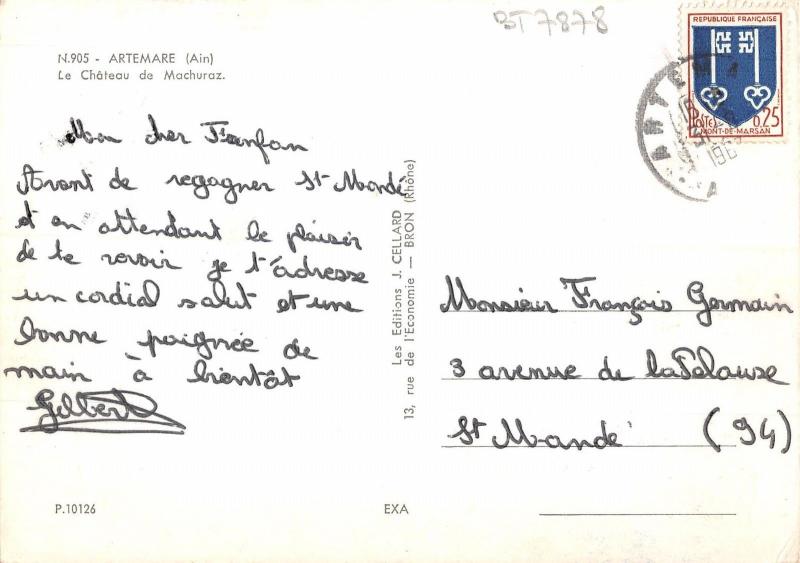 BT7878
N.905 - ARTEMARE (Ain)
Le Château de Machuraz.
Mon cher Fanfan
Avant de regagner St-Mandé
et en attendant le plaisir
de te revoir je t'adresse
un cordial salut et une
bonne poignée de
main à bientôt
Gilbert
P.10126
EXA
Les Editions J. CELLARD
13, rue de l'Economie — BRON (Rhône)
REPUBLIQUE FRANÇAISE
POSTES 0,25
MONT-DE-MARSAN
ARTEM
Monsieur François Germain
3 avenue de la Pelouse
St Mandé (94)